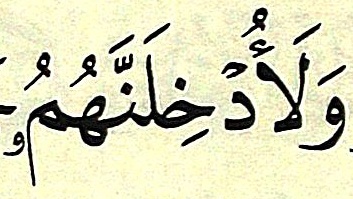 وَلَأُدْخِلَنَّهُمُ